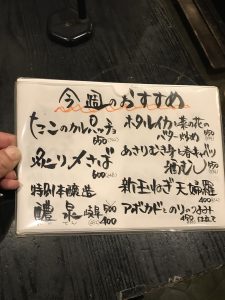 今週のおすすめ
たこのカルパッチョ
650
炙り〆さば
600
特別本醸造
醴泉 岐阜 500
400
ホタルイカと菜の花の
バター炒め 650
あさりむき身と春キャベツ
酒むし 550
新玉ねぎ天婦羅
400
アボカドとのりのつまみ
450